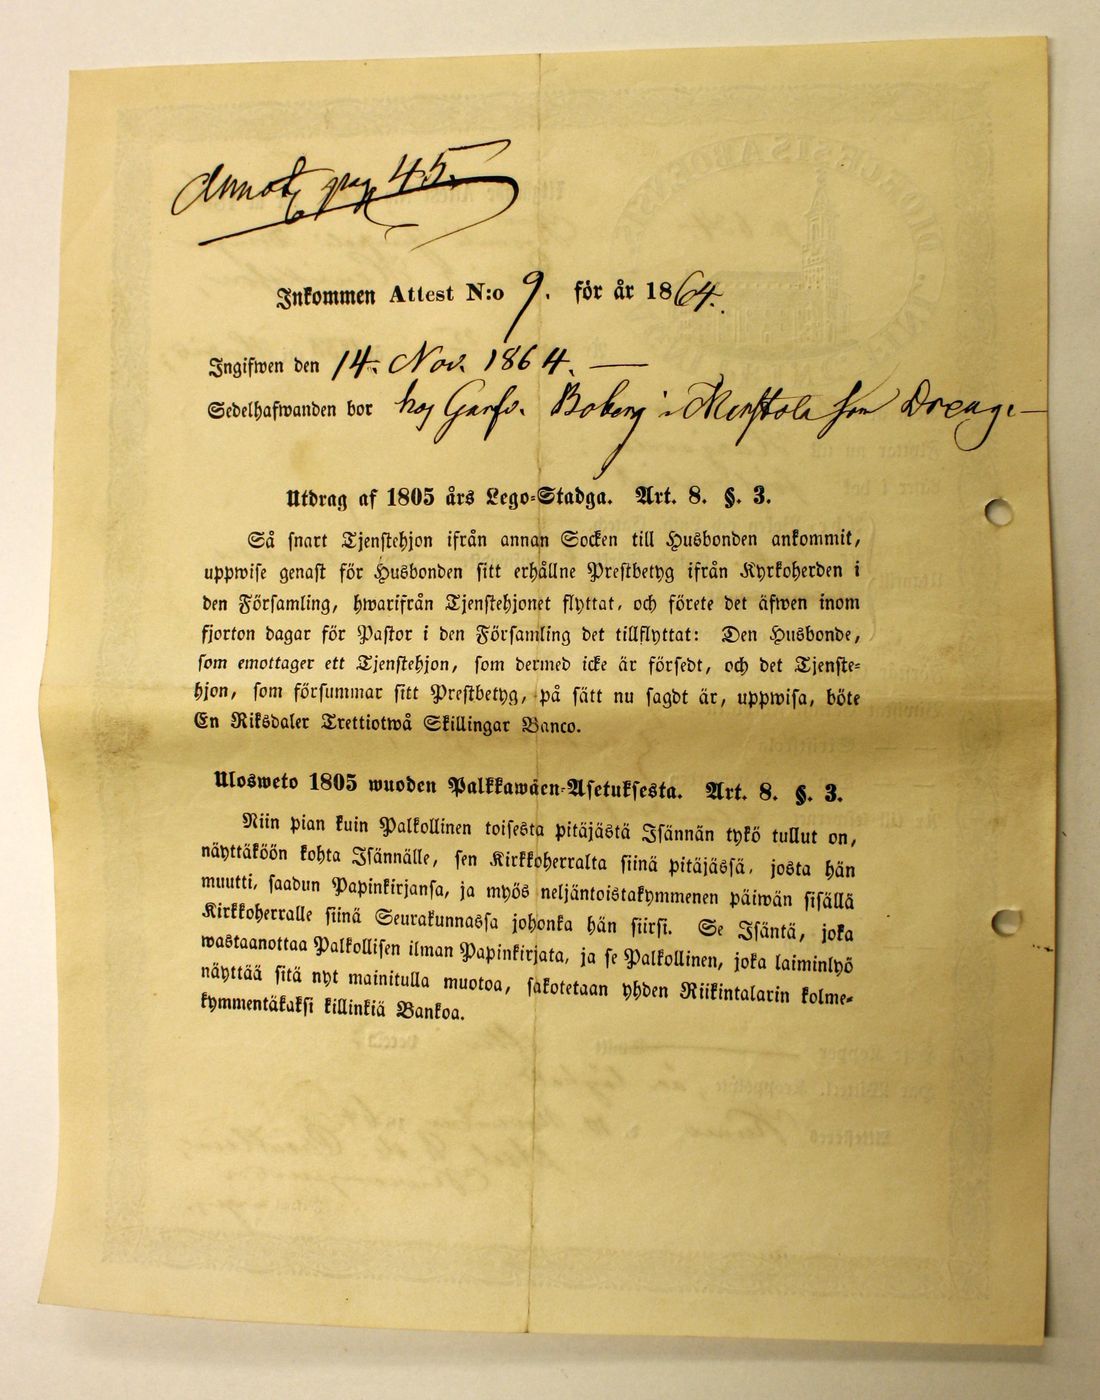 Annot. pag 45.
Inkommen Attest N:o 9. för år 1864.
Ingifwen den 14. Nov. 1864. —
Sedelhafwanden bor hos Garfv. Boberg i som Dreng. —
Utdrag af 1805 års Lego-Stadga. Art. 8. §. 3.
Så snart Tjenstehjon ifrån annan Socken till Husbonden ankommit,
uppwise genast för Husbonden sitt erhållne Prestbetyg ifrån Kyrkoherden i
den Församling, hwarifrån Tjenstehjonet flyttat, och förete det äfwen inom
fjorton dagar för Pastor i den Församling det tillflyttat: Den Husbonde,
som emottager ett Tjenstehjon, som dermed icke är försedt, och det Tjenste-
hjon, som försummar sitt Prestbetyg, på sätt nu sagdt är, uppwisa, böte
En Riksdaler Trettiotwå Skillingar Banco.
Ulosweto 1805 wuoden Palkkawäen-Asetuksesta. Art. 8. §. 3.
Niin pian kuin Palkollinen toisesta pitäjästä Isännän tykö tullut on,
näyttäköön kohta Isännälle, sen Kirkkoherralta siinä pitäjässä, josta hän
muutti, saadun Papinkirjansa, ja myös neljäntoistakymmenen päiwän sisällä
Kirkkoherralle siinä Seurakunnassa johonka hän siirsi. Se Isäntä, joka
wastaanottaa Palkollisen ilman Papinkirjata, ja se Palkollinen, joka laiminlyö
näyttää sitä nyt mainitulla muotoa, sakotetaan yhden Riikintalarin kolme-
kymmentäkaksi killinkiä Bankoa.